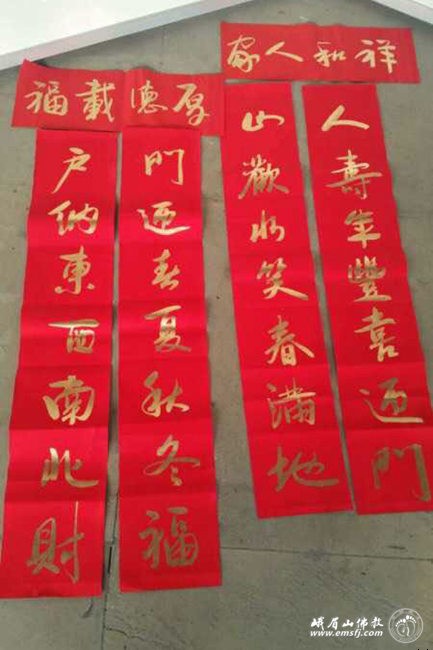 祥和人家
人壽年豐喜迎門
山歡水笑春滿地
厚德載福
門迎春夏秋冬福
户纳東西南北財
峨眉山佛教
www.emsfj.com